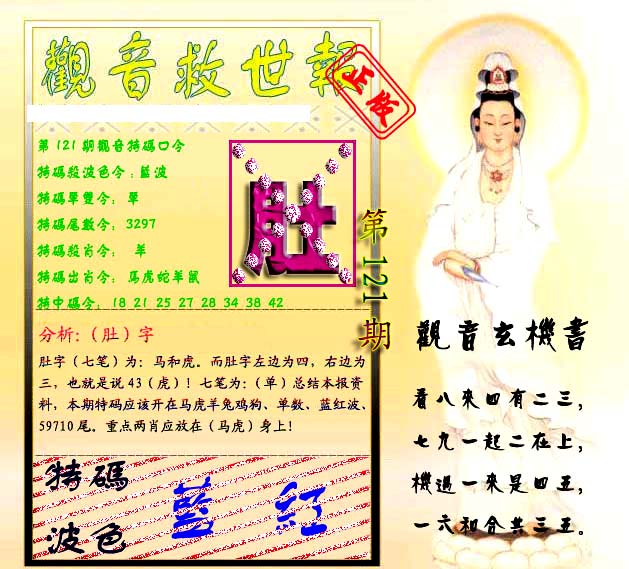 觀音救世報
正版
第121期觀音特碼口令
特碼殺波色令:藍波
特碼單雙令: 單
特碼尾數令: 3297
特碼殺肖令: 羊
特碼出肖令: 馬虎蛇羊鼠
特中碼令: 18 21 25 27 28 34 38 42
肚
第121期
分析:(肚)字
肚字(七笔)为:马和虎。而肚字左边为四,右边为
三,也就是说43(虎)!七笔为:(单)总结本报资
料,本期特码应该开在马虎羊兔鸡狗、单数、蓝红波、
59710尾。重点两肖应放在(马虎)身上!
特碼
波色
藍 紅
觀音玄機書
看八來四有二三,
七九一起二在上,
機過一來是四五,
一六和合共三五。